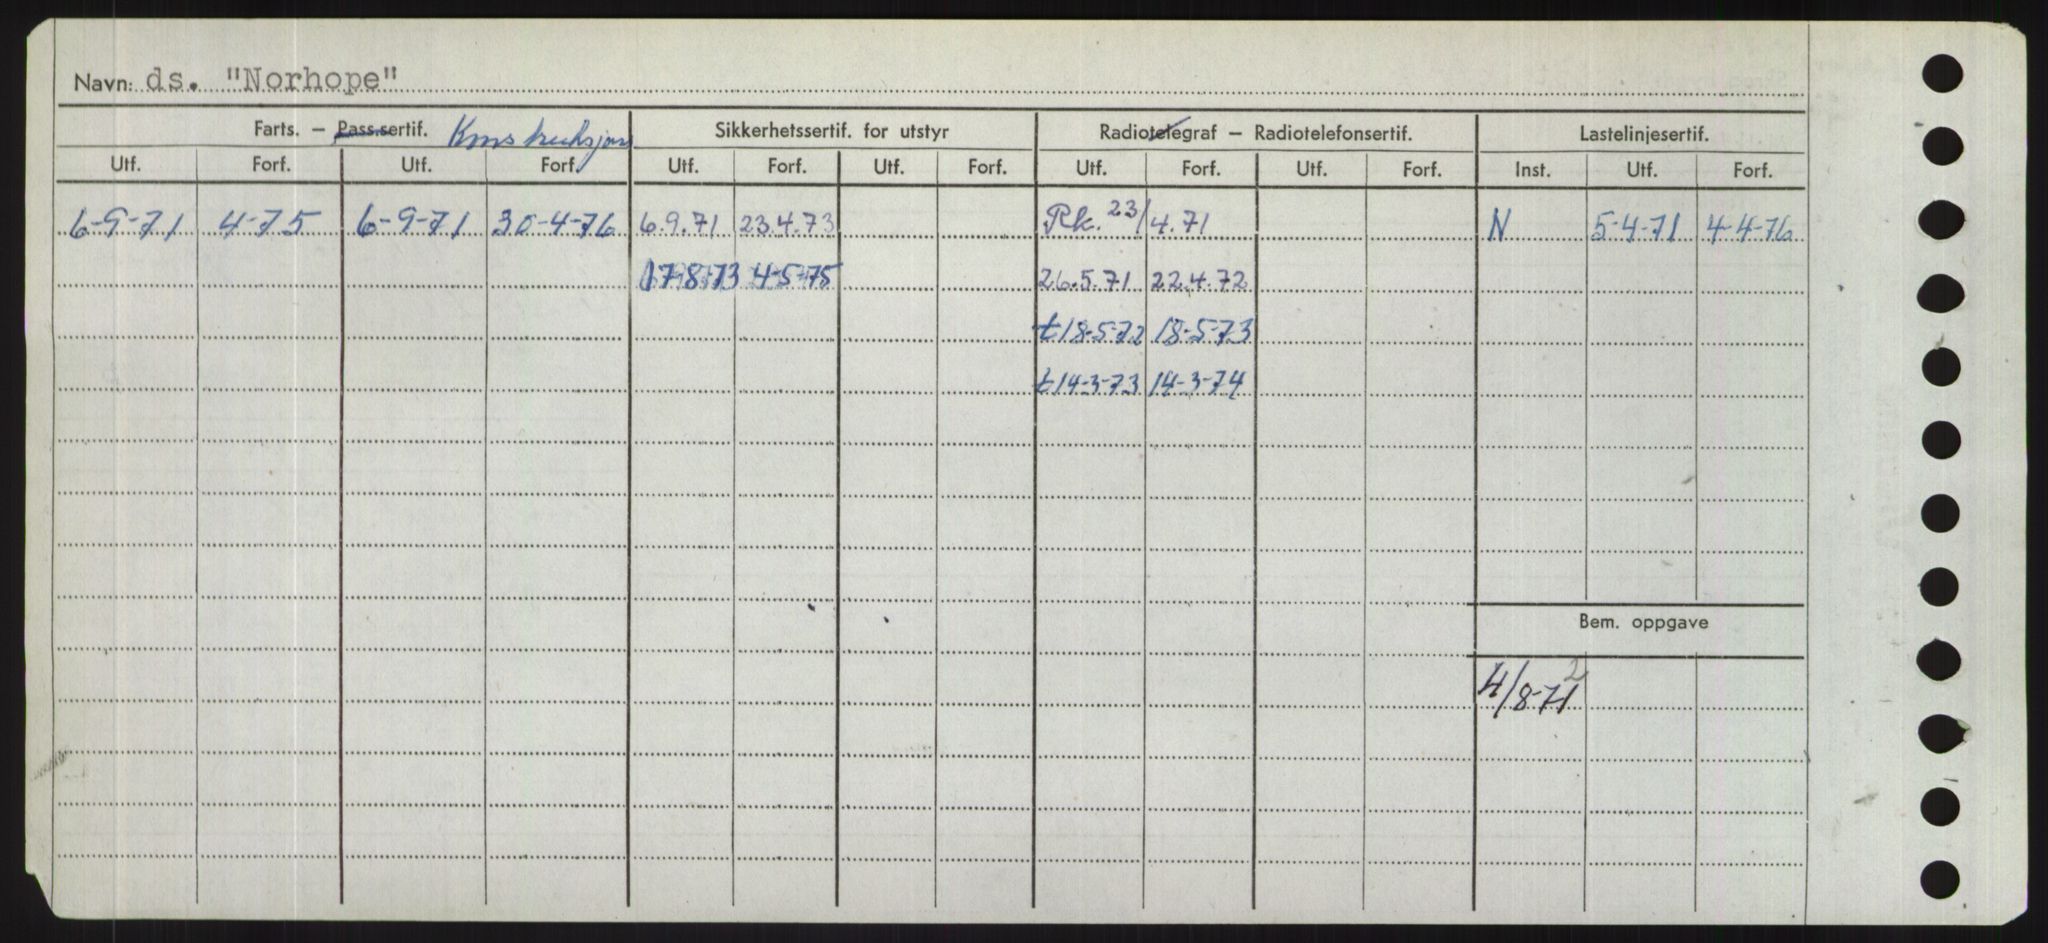 Navn: ds. "Norhope"
Farts. – Pass.sertif. Konstruksjon Sikkerhetssertif. for utstyr Radiotelegraf – Radiotelefonsertif. Lastelinjesertif.
Utf. Forf. Utf. Forf. Utf. Forf. Utf. Forf. Utf. Forf. Utf. Forf. Inst. Utf. Forf.
6-9-71 4-75 6-9-71 30-4-76 6.9.71 23.4.73 Rk. 23/4.71 N 5-4-71 4-4-76
17-8-73 4-5-75 26.5.71 22.4.72
t 18-5-72 18-5-73
t 14-3-73 14-3-74
Bem. oppgave
4/8-71 2